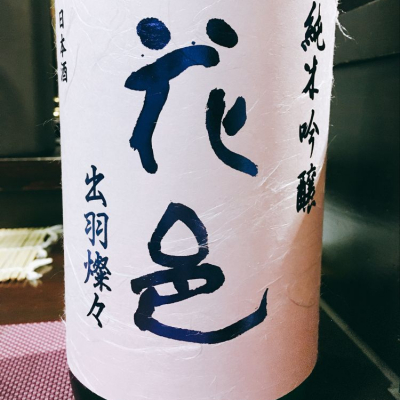 純米吟醸
花邑
出羽燦々
日本酒